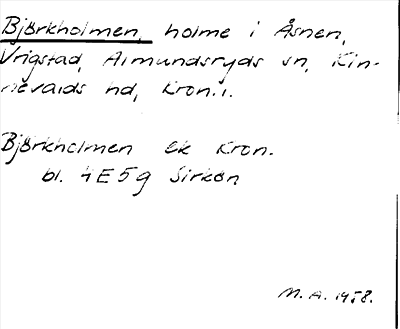 Björkholmen, holme i Åsnen,
Vrigstad, Almundsryds sn, Kin-
nevalds hd, Kron.l.
Björkholmen ek Kron.
bl. 4E5g Sirkön
M. A. 1958.